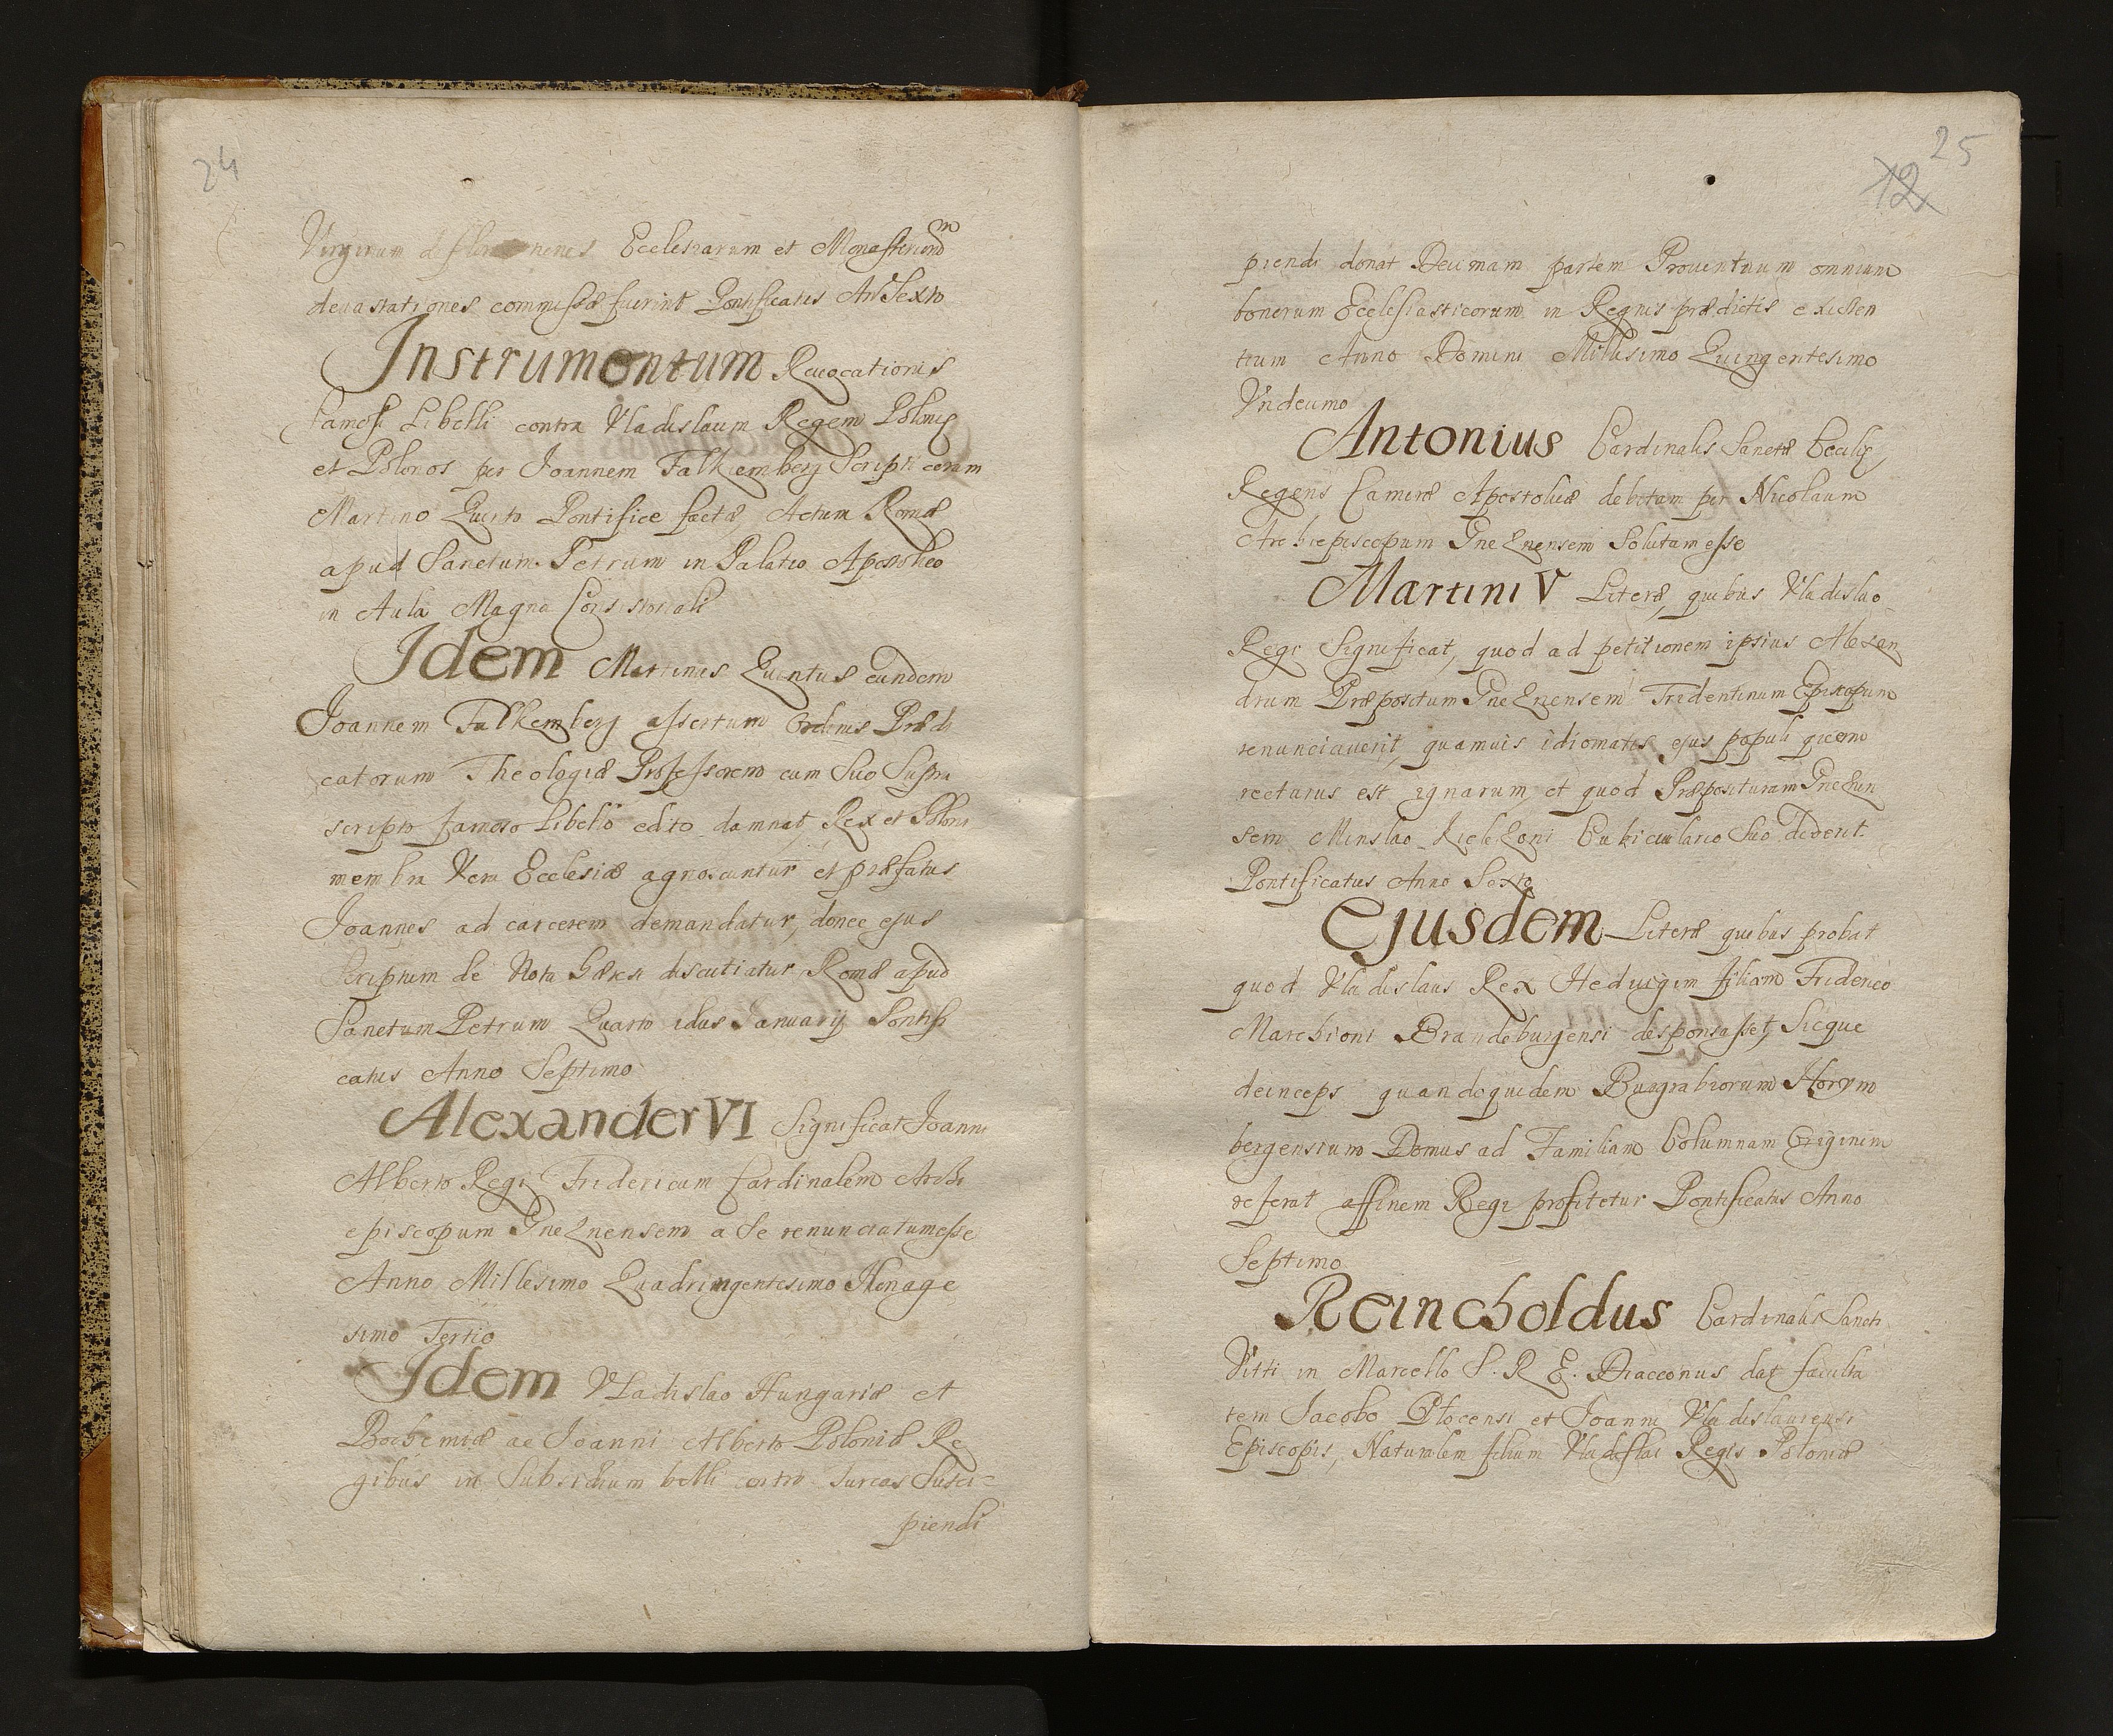 24
Virginum deflorationes Ecclesiarum et Monasteriorũ
deuastationes commissæ fuerint Pontificatus An̄ Sexto
Instrumentum Reuocationis
famosi Libelli contra Vladislaum Regem Poloniæ
et Polonos per Joannem Falkemberg Scripti coram
Martino Quinto Pontifice factæ, Actum Romæ
apud Sanctum Petrum in Palatio Apostolico
in Aula Magna Consistoriali
Idem Martinus Quintus eundem
Joannem Falkemberg assertum Ordinis Prædi
catorum Theologiæ Professorem cum Suo Supra
scripto famoso Libello edito damnat, Rex et Poloni
membra Vera Ecclesiæ agnoscuntur et præfatus
Joannes ad carcerem demandatur, donec ejus
Scriptum de Nota hæresi discutiatur, Romæ apud
Sanctum Petrum Quarto idus Januarij Pontifi
catus Anno Septimo
Alexander VI Significat Joanni
Alberto Regi Fridericum Cardinalem Archi
episcopum Gneznensem a Se renunciatum esse
Anno Millesimo Quadringentesimo Nonage
simo Tertio
Idem Vladislao Hungariæ et
Bochemiæ ac Joanni Alberto Poloniæ Re
gibus in Subsidium belli contra Turcas Susci=
piendi
25
12
piendi donat Decimam partem Prouentuum omnium
bonorum Ecclesiasticorum in Regnis prædictis existen
tium Anno Domini Millesimo Quingentesimo
Vndecimo
Antonius Cardinalis Sanctæ Ceciliæ,
Regens Cameræ Apostolicæ debitam per Nicolaum
Archiepiscopum Gneznensem Solutam esse
Martini V Literæ, quibus Vladislao
Regi Significat, quod ad petitionem ipsius Alexan
drum Præpositum Gneznensem Tridentinum Episcopum
renunciauerit, quamuis idiomatis ejus populi quem
recturus est ignarum, et quod Præposituram Gnezn
sem Minslao Kielzoni Cubiculario Suo dederit.
Pontificatus Anno Sexto
Ejusdem Literæ quibus probat
quod Vladislaus Rex Heduigem filiam Friderico
Marchioni Brandeburgensi desponsasset, Sicque
deinceps quandoquidem Burgrabiorum Norym
bergensium Domus ad Familiam Columnam Originem
referat affinem Regi profitetur Pontificatus Anno
Septimo
Reincholdus Cardinalis Sancti
Vitti in Marcello S. R. E. Diacconus dat faculta
tem Jacobo Plocensi et Joanni Vladislauiensi
Episcopis, Naturalem filium Vladislai Regis Poloniæ